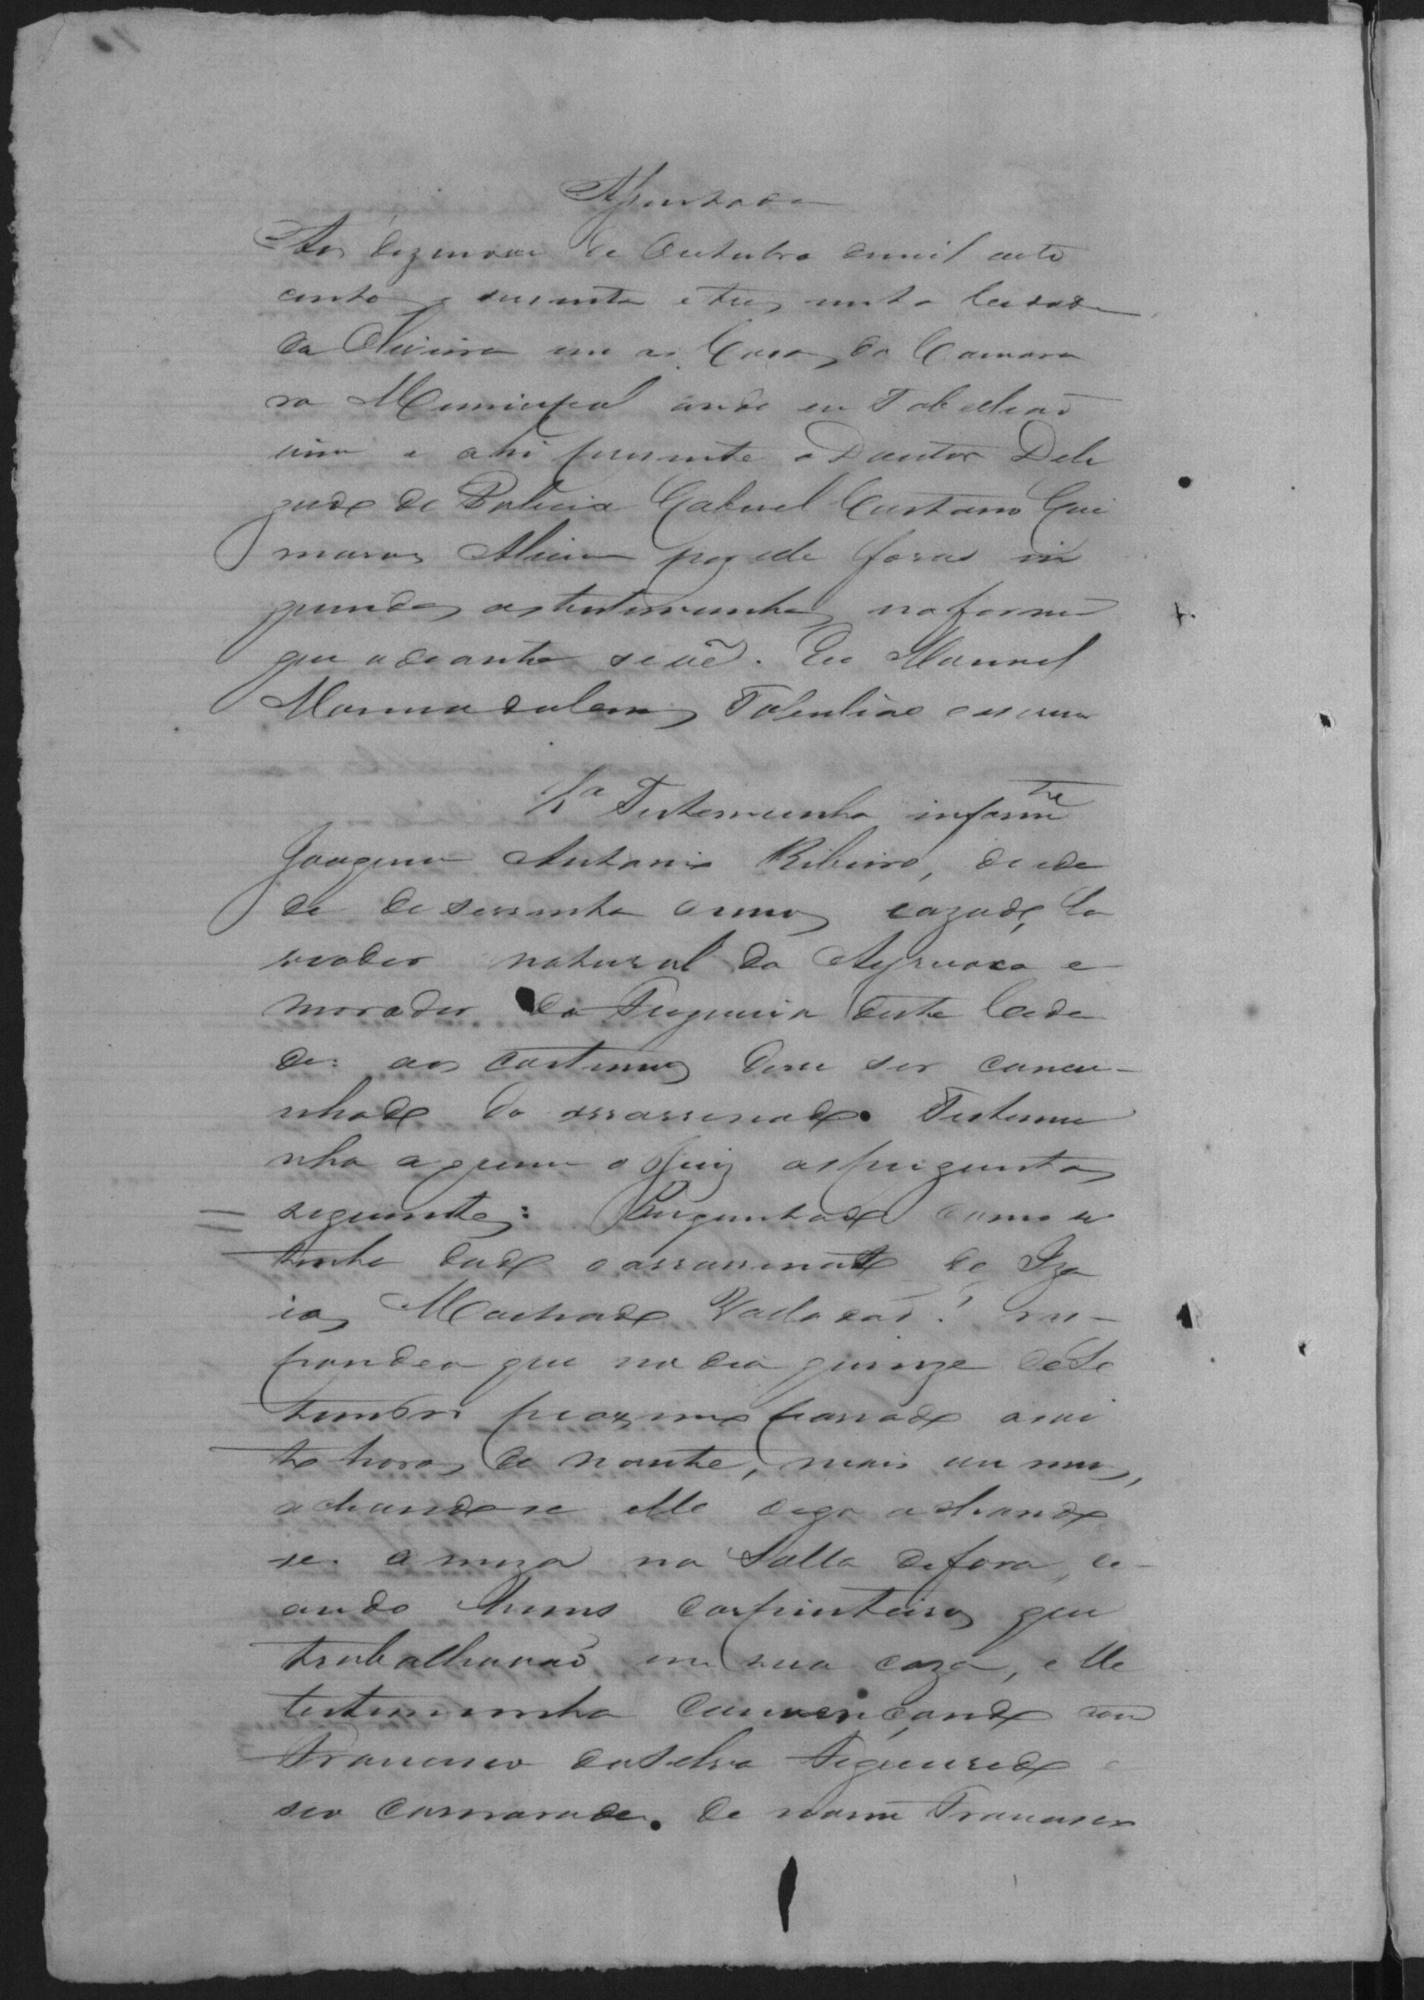 Assentada
Aos dezenove de Outubro de mil oito
centos e sessenta e tres nesta Cidade
da Oliveira em as Casas da Camara
ra Municipal onde eu Tabelliaõ
vim e ahi presente o Doutor Dele
gado de Policia Gabriel Caetano Gui
maraes por elle foraõ in
queridas as testemunhas na forma
que adeante se vê. Eu Manoel
Tabeliaõ escrevi
1a Testemunha informte
Joaquim Antonio Ribeiro, de ida
de de sessenta annos cazado, la
vrador natural da Ayuruoca e
morador da Freguesia desta Cida
de: aos costumes disse ser concu-
nhado do assassinado. Testemu
nha a quem o Juiz as perguntas
seguintes: Perguntado como se
tinha dado o assassinato de Iza
ias Machado Valadaõ? res-
pondeo que no dia quinze de Se
tembro proximo passado as oi
to horas da noute, mais ou menos,
achando-se elle digo achando
se a meza na salla de fora, ce-
ando huns carpinteiros que
trabalhavaõ em sua caza, e elle
testemunha conversando com
Francisco da Silva Figueiredo e
seo camarada. de nome Francisco